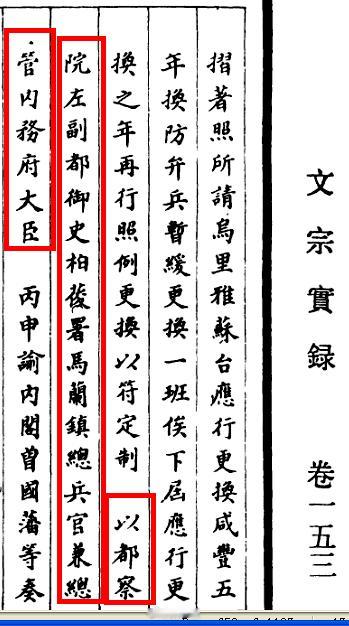 文宗實録 卷一五三
摺著照所請烏里雅蘇台應行更換咸豐五
年換防弁兵暫緩更換一班俟下屆應行更
換之年再行照例更換以符定制 以都察
院左副都御史柏葰署馬蘭鎮總兵官兼總
管內務府大臣 丙申諭內閣曾國藩等奏